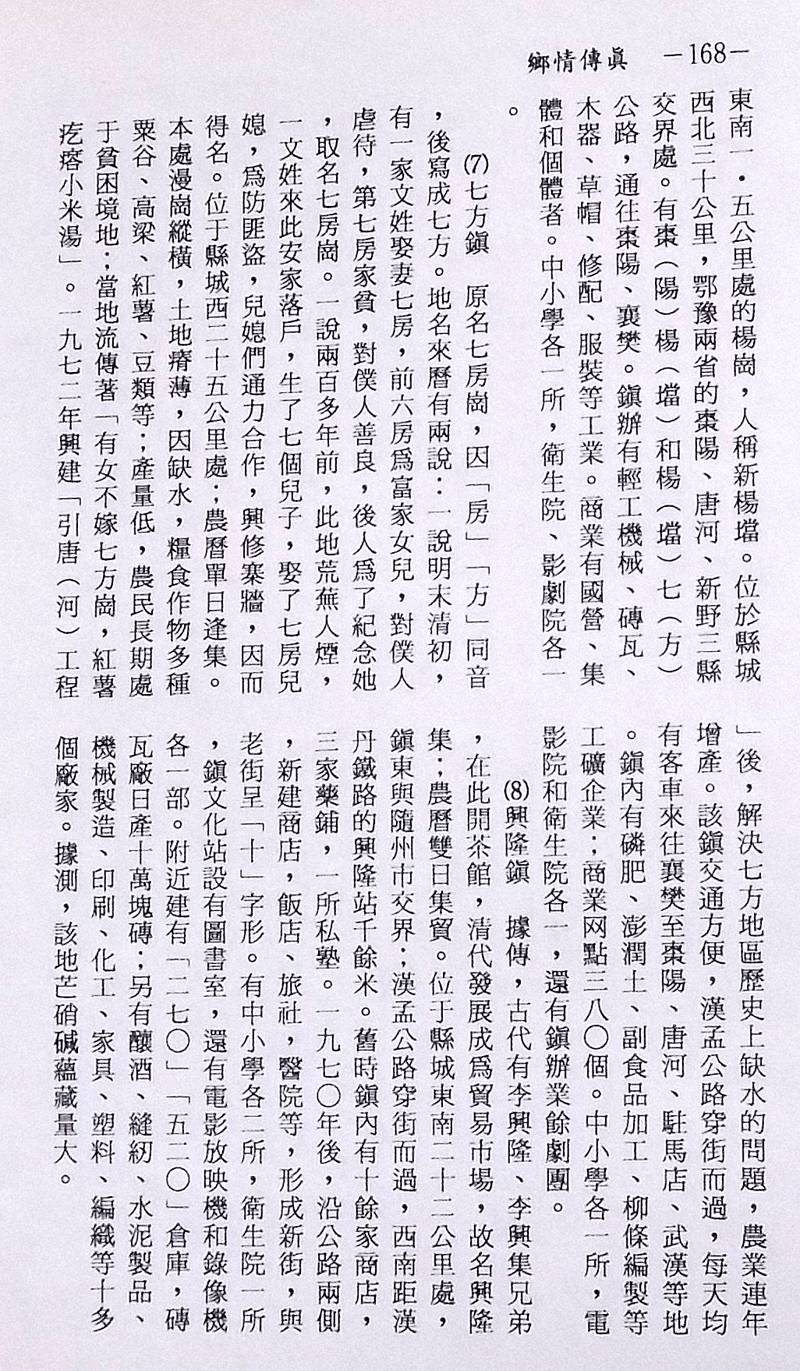 鄉情傳眞　—168—
東南一・五公里處的楊崗，人稱新楊壋。位於縣城
西北三十公里，鄂豫兩省的棗陽、唐河、新野三縣
交界處。有棗（陽）楊（壋）和楊（壋）七（方）
公路，通往棗陽、襄樊。鎭辦有輕工機械、磚瓦、
木器、草帽、修配、服裝等工業。商業有國營、集
體和個體者。中小學各一所，衛生院、影劇院各一
。
⑺七方鎭　原名七房崗，因「房」「方」同音
，後寫成七方。地名來曆有兩說：一說明末清初，
有一家文姓娶妻七房，前六房爲富家女兒，對僕人
虐待，第七房家貧，對僕人善良，後人爲了紀念她
，取名七房崗。一說兩百多年前，此地荒蕪人煙，
一文姓來此安家落戶，生了七個兒子，娶了七房兒
媳，爲防匪盜，兒媳們通力合作，興修寨牆，因而
得名。位于縣城西二十五公里處；農曆單日逢集。
本處漫崗縱橫，土地瘠薄，因缺水，糧食作物多種
粟谷、高梁、紅薯、豆類等；產量低，農民長期處
于貧困境地；當地流傳著「有女不嫁七方崗，紅薯
疙瘩小米湯」。一九七二年興建「引唐（河）工程
」後，解決七方地區歷史上缺水的問題，農業連年
增產。該鎭交通方便，漢孟公路穿街而過，每天均
有客車來往襄樊至棗陽、唐河、駐馬店、武漢等地
。鎭內有磷肥、澎潤土、副食品加工、柳條編製等
工礦企業；商業网點三八〇個。中小學各一所，電
影院和衛生院各一，還有鎭辦業餘劇團。
⑻興隆鎭　據傳，古代有李興隆、李興集兄弟
，在此開茶館，清代發展成爲貿易市場，故名興隆
集；農曆雙日集貿。位于縣城東南二十二公里處，
鎭東與隨州市交界；漢孟公路穿街而過，西南距漢
丹鐵路的興隆站千餘米。舊時鎭內有十餘家商店，
三家藥鋪，一所私塾。一九七〇年後，沿公路兩側
，新建商店，飯店、旅社，醫院等，形成新街，與
老街呈「十」字形。有中小學各二所，衛生院一所
，鎭文化站設有圖書室，還有電影放映機和錄像機
各一部。附近建有「二七〇」「五二〇」倉庫，磚
瓦廠日產十萬塊磚；另有釀酒、縫紉、水泥製品、
機械製造、印刷、化工、家具、塑料、編織等十多
個廠家。據測，該地芒硝碱蘊藏量大。